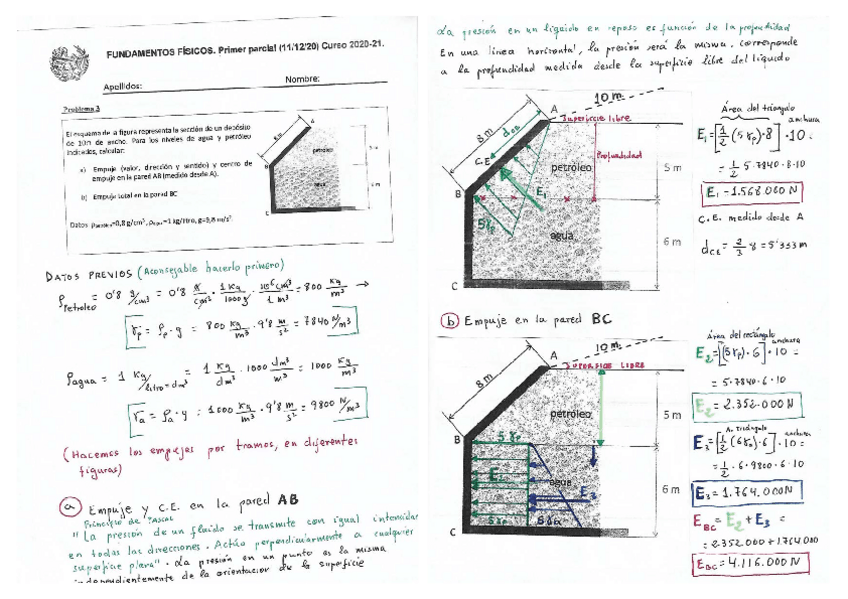 FUNDAMENTOS FÍSICOS. Primer parcial (11/12/20) Curso 2020-21.
Apellidos: Nombre:
Problema 3
El esquema de la figura representa la sección de un depósito
de 10m de ancho. Para los niveles de agua y petróleo
indicados, calcular:
a) Empuje (valor, dirección y sentido) y centro de
empuje en la pared AB (medido desde A).
b) Empuje total en la pared BC
Datos ρpetróleo=0,8 g/cm³, ρagua=1 kg/litro, g=9,8 m/s²
A
8 m
petróleo
B
agua
C
DATOS PREVIOS (Aconsejable hacerlo primero)
ρPetroleo = 0'8 g/cm³ = 0'8 g/cm³ · 1 Kg/1000 g · 10⁶ cm³/1 m³ = 800 Kg/m³ →
γp = ρp · g = 800 Kg/m³ · 9'8 m/s² = 7840 N/m³
ρagua = 1 Kg/litro=dm³ = 1 Kg/dm³ · 1000 dm³/m³ = 1000 Kg/m³
γa = ρa · g = 1000 Kg/m³ · 9'8 m/s² = 9800 N/m³
(Hacemos los empujes por tramos, en diferentes
figuras)
a Empuje y C.E. en la pared AB
Principio de Pascal
"La presión de un fluido se transmite con igual intensidad
en todas las direcciones. Actúa perpendicularmente a cualquier
superficie plana". La presión en un punto es la misma
independientemente de la orientación de la superficie
La presión en un líquido en reposo es función de la profundidad
En una línea horizontal, la presión será la misma. Corresponde
a la profundidad medida desde la superficie libre del líquido
10 m
A
8 m
Superficie libre
C.E.
petróleo
Profundidad
5 m
B
E1
5γp
agua
6 m
C
Área del triangulo
anchura
E1 = [1/2 (5γp)·8] · 10 =
= 1/2 5·7840·8·10
E1 = 1.568.000 N
C.E. medido desde A
dCE = 2/3 8 = 5'333 m
b Empuje en la pared BC
10 m
A
8 m
SUPERFICIE LIBRE
petróleo
5 m
B
5γp
agua
E2
E3
6 m
5γp
6γa
C
Área del rectángulo
anchura
E2 = [(5γp)·6] · 10 =
= 5·7840·6·10
E2 = 2.352.000 N
A. triángulo
anchura
E3 = [1/2 (6γa)·6] · 10 =
= 1/2 · 6·9800·6·10
E3 = 1.764.000 N
EBC = E2 + E3 =
= 2.352.000 + 1.764.000
EBC = 4.116.000 N